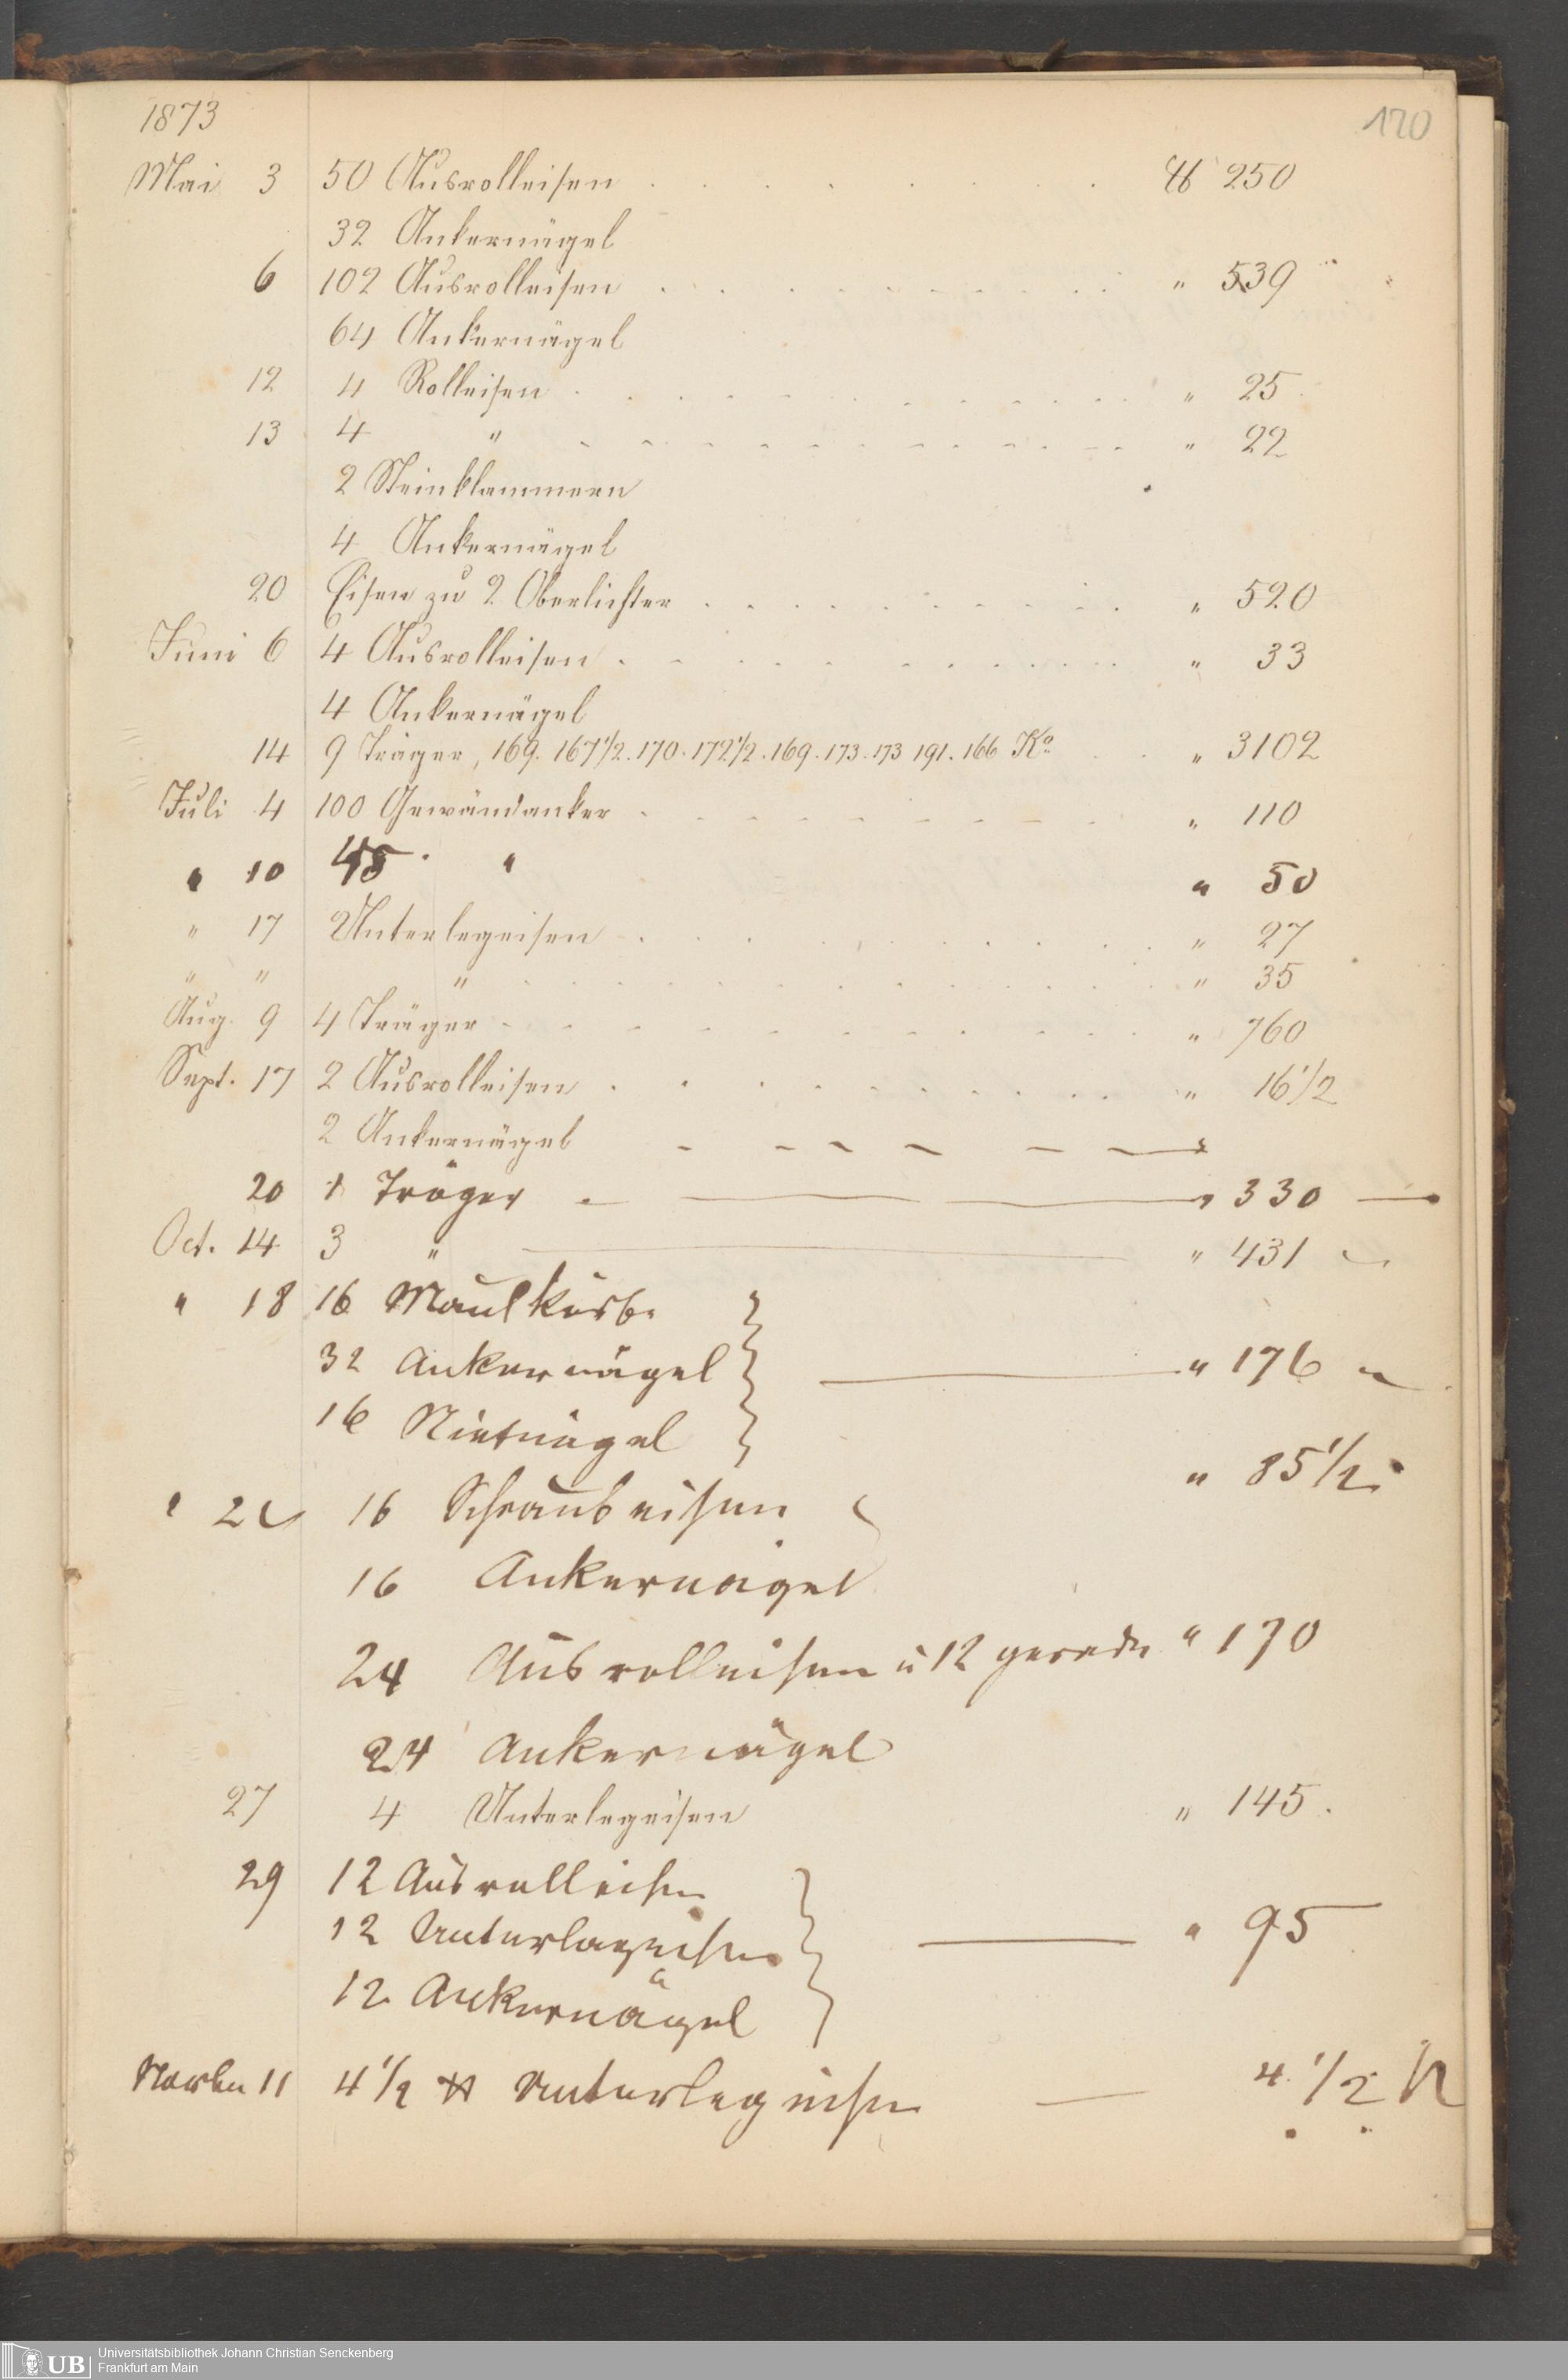 1873
120
Mai 3 50 Ausrolleisen . . . . . . . ℔ 250
32 Ankernägel
6 102 Ausrolleisen . . . . . . . " 539
64 Ankernägel
12 4 Rolleisen . . . . . . . " 25
13 4 " . . . . . . . " 22
2 Steinklammern
4 Ankernägel
20 Eisen zu 2 Oberlichter . . . . . . . " 520
Juni 6 4 Ausrolleisen . . . . . . . " 33
4 Ankernägel
14 9 Träger, 169. 167 1/2. 170. 172 1/2. 169. 173. 173 191. 166 Ko. . . " 3102
Juli 4 100 Gewändanker . . . . . . . " 110
" 10 45 " " 50
" 17 Unterlegeisen . . . . . . . " 27
" " " . . . . . . . " 35
Aug. 9 4 Träger . . . . . . . " 760
Sept. 17 2 Ausrolleisen . . . . . . . " 16 1/2
2 Ankernägel
20 1 Träger " 330 —
Oct. 14 3 " " 431
" 18 16 Maulkörbe
32 Ankernägel " 176
16 Nietnägel
" 85 1/2
16 Schraubeisen
16 Ankernägel
24 Ausrolleisen u 12 gerade " 170
24 Ankernägel
27 4 Unterlegeisen " 145.
29 12 Ausrolleisen
12 Unterlageisen " 95
12 Ankernägel
Novbr 11 4 1/2 ℔ Unterlegeisen — 4 1/2 ℔
UB Universitätsbibliothek Johann Christian Senckenberg
Frankfurt am Main